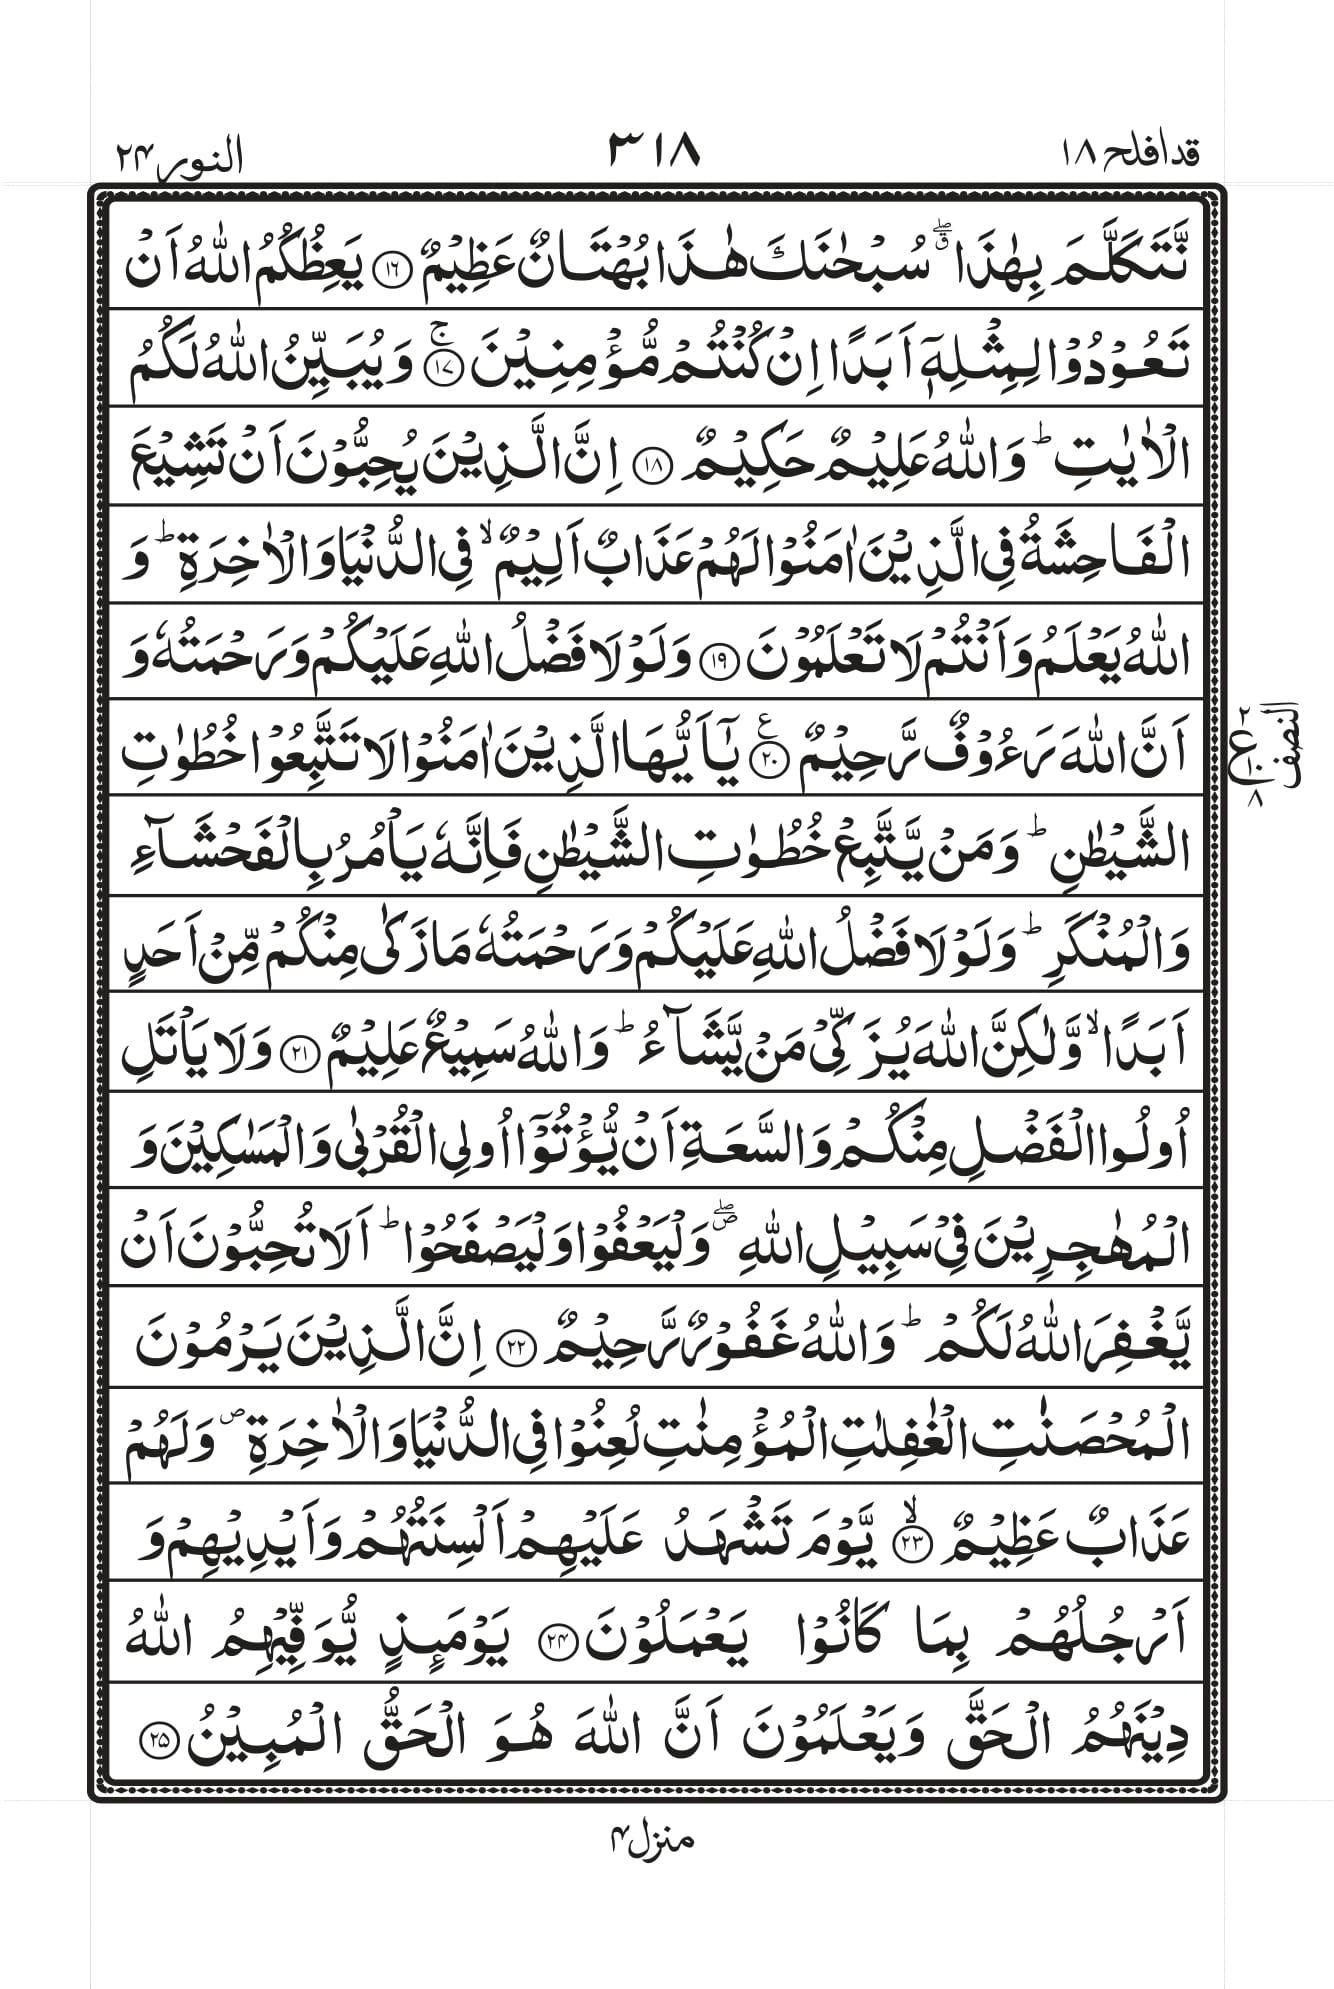 قدافلح ۱۸
۳۱۸
النور ۲۴
نَّتَكَلَّمَ بِهٰذَا ۖۗ سُبْحٰنَكَ هٰذَا بُهْتَانٌ عَظِيْمٌ ۝۱۶ يَعِظُكُمُ اللّٰهُ اَنْ
تَعُوْدُوْا لِمِثْلِهٖۤ اَبَدًا اِنْ كُنْتُمْ مُّؤْمِنِيْنَ ۝۱۷ۚ وَيُبَيِّنُ اللّٰهُ لَكُمُ
الْاٰيٰتِ ؕ وَاللّٰهُ عَلِيْمٌ حَكِيْمٌ ۝۱۸ اِنَّ الَّذِيْنَ يُحِبُّوْنَ اَنْ تَشِيْعَ
الْفَاحِشَةُ فِي الَّذِيْنَ اٰمَنُوْا لَهُمْ عَذَابٌ اَلِيْمٌ ۙ فِي الدُّنْيَا وَالْاٰخِرَةِ ؕ وَ
اللّٰهُ يَعْلَمُ وَاَنْتُمْ لَا تَعْلَمُوْنَ ۝۱۹ وَلَوْلَا فَضْلُ اللّٰهِ عَلَيْكُمْ وَرَحْمَتُهٗ وَ
اَنَّ اللّٰهَ رَءُوْفٌ رَّحِيْمٌ ۝۲۰ع يٰۤاَيُّهَا الَّذِيْنَ اٰمَنُوْا لَا تَتَّبِعُوْا خُطُوٰتِ
۲ ع ۱۰ ۸
النصف
الشَّيْطٰنِ ؕ وَمَنْ يَّتَّبِعْ خُطُوٰتِ الشَّيْطٰنِ فَاِنَّهٗ يَاْمُرُ بِالْفَحْشَآءِ
وَالْمُنْكَرِ ؕ وَلَوْلَا فَضْلُ اللّٰهِ عَلَيْكُمْ وَرَحْمَتُهٗ مَا زَكٰى مِنْكُمْ مِّنْ اَحَدٍ
اَبَدًا ۙ وَّلٰكِنَّ اللّٰهَ يُزَكِّيْ مَنْ يَّشَآءُ ؕ وَاللّٰهُ سَمِيْعٌ عَلِيْمٌ ۝۲۱ وَلَا يَاْتَلِ
اُولُوا الْفَضْلِ مِنْكُمْ وَالسَّعَةِ اَنْ يُّؤْتُوْۤا اُولِي الْقُرْبٰى وَالْمَسٰكِيْنَ وَ
الْمُهٰجِرِيْنَ فِيْ سَبِيْلِ اللّٰهِ ۖ وَلْيَعْفُوْا وَلْيَصْفَحُوْا ؕ اَلَا تُحِبُّوْنَ اَنْ
يَّغْفِرَ اللّٰهُ لَكُمْ ؕ وَاللّٰهُ غَفُوْرٌ رَّحِيْمٌ ۝۲۲ اِنَّ الَّذِيْنَ يَرْمُوْنَ
الْمُحْصَنٰتِ الْغٰفِلٰتِ الْمُؤْمِنٰتِ لُعِنُوْا فِي الدُّنْيَا وَالْاٰخِرَةِ ص وَلَهُمْ
عَذَابٌ عَظِيْمٌ ۝۲۳ۙ يَّوْمَ تَشْهَدُ عَلَيْهِمْ اَلْسِنَتُهُمْ وَاَيْدِيْهِمْ وَ
اَرْجُلُهُمْ بِمَا كَانُوْا يَعْمَلُوْنَ ۝۲۴ يَوْمَئِذٍ يُّوَفِّيْهِمُ اللّٰهُ
دِيْنَهُمُ الْحَقَّ وَيَعْلَمُوْنَ اَنَّ اللّٰهَ هُوَ الْحَقُّ الْمُبِيْنُ ۝۲۵
منزل ۴